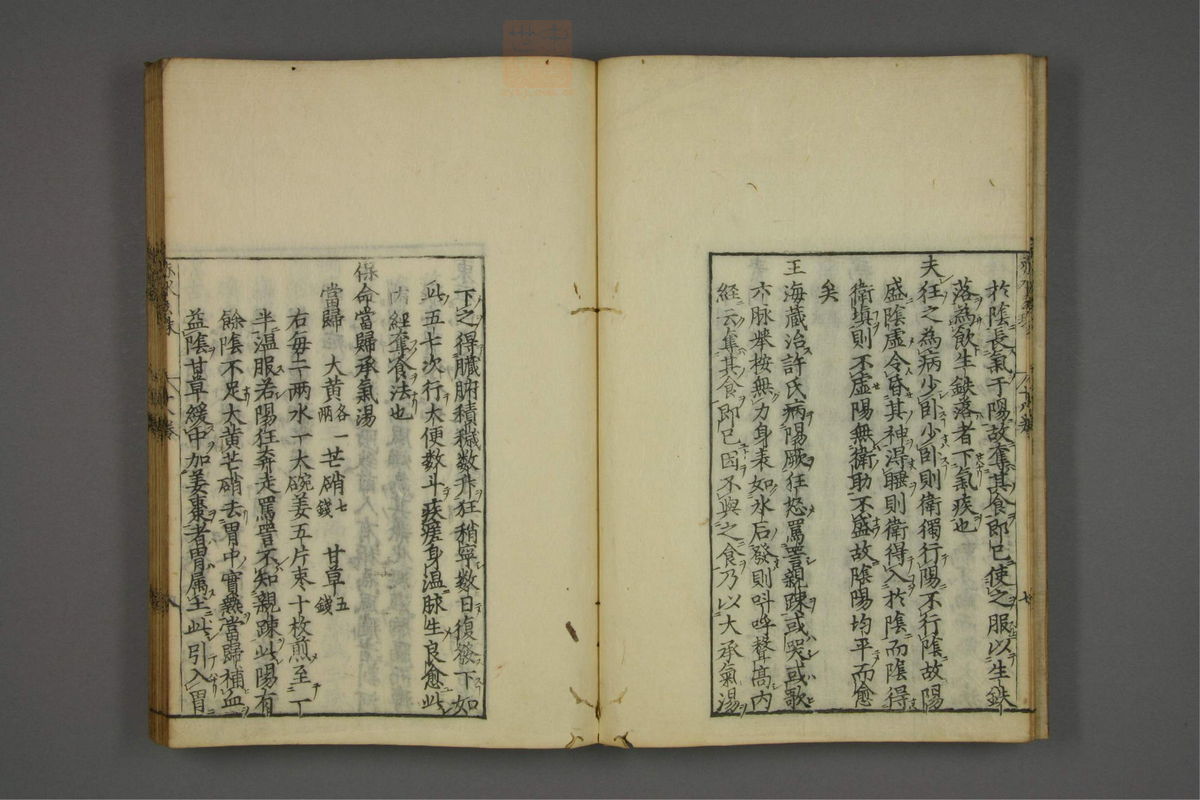 於陰長氣于陽故奪其食即已使之服以生鉄
落為飲生鉄落者下氣疾也
夫狂之為病少卧少卧則衛獨行陽不行陰故陽
盛陰虛令昏其神得睡則衛得入於陰而陰得
衛填則不虛陽無衛助不盛故陰陽均平而愈
矣
王海蔵治許氏病陽厥狂怒罵詈親踈或哭或歌
六脉舉按無力身表如水后發則呌呼聲高内
經云奪其食即已因不與之食乃以大承氣湯
下之得臓腑積穢数升狂稍寧数日復發下如
此五七次行大便数斗疾瘥身温脉生良愈此
内經奪食法也
保命當歸承氣湯
當歸 大黄各一兩 芒硝七錢 甘草五錢
右毎二両水一大碗姜五片束十枚煎至一丁
半温服若陽狂奔走罵詈不知親踈此陽有
餘陰不足大黄芒硝去胃中實熱當歸補血
益陰甘草緩中加姜棗者胃属土此引入胃